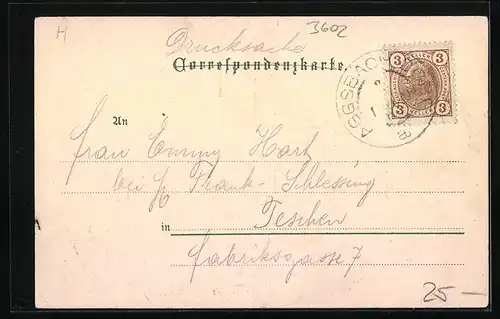 H
3602
Drucksache
Correspondenzkarte.
3 3
3 3
AGGSBACH
An
Frau Emmy Hart
bei H Frank-Schlesing
in Teschen
Fabriksgasse 7
25 –